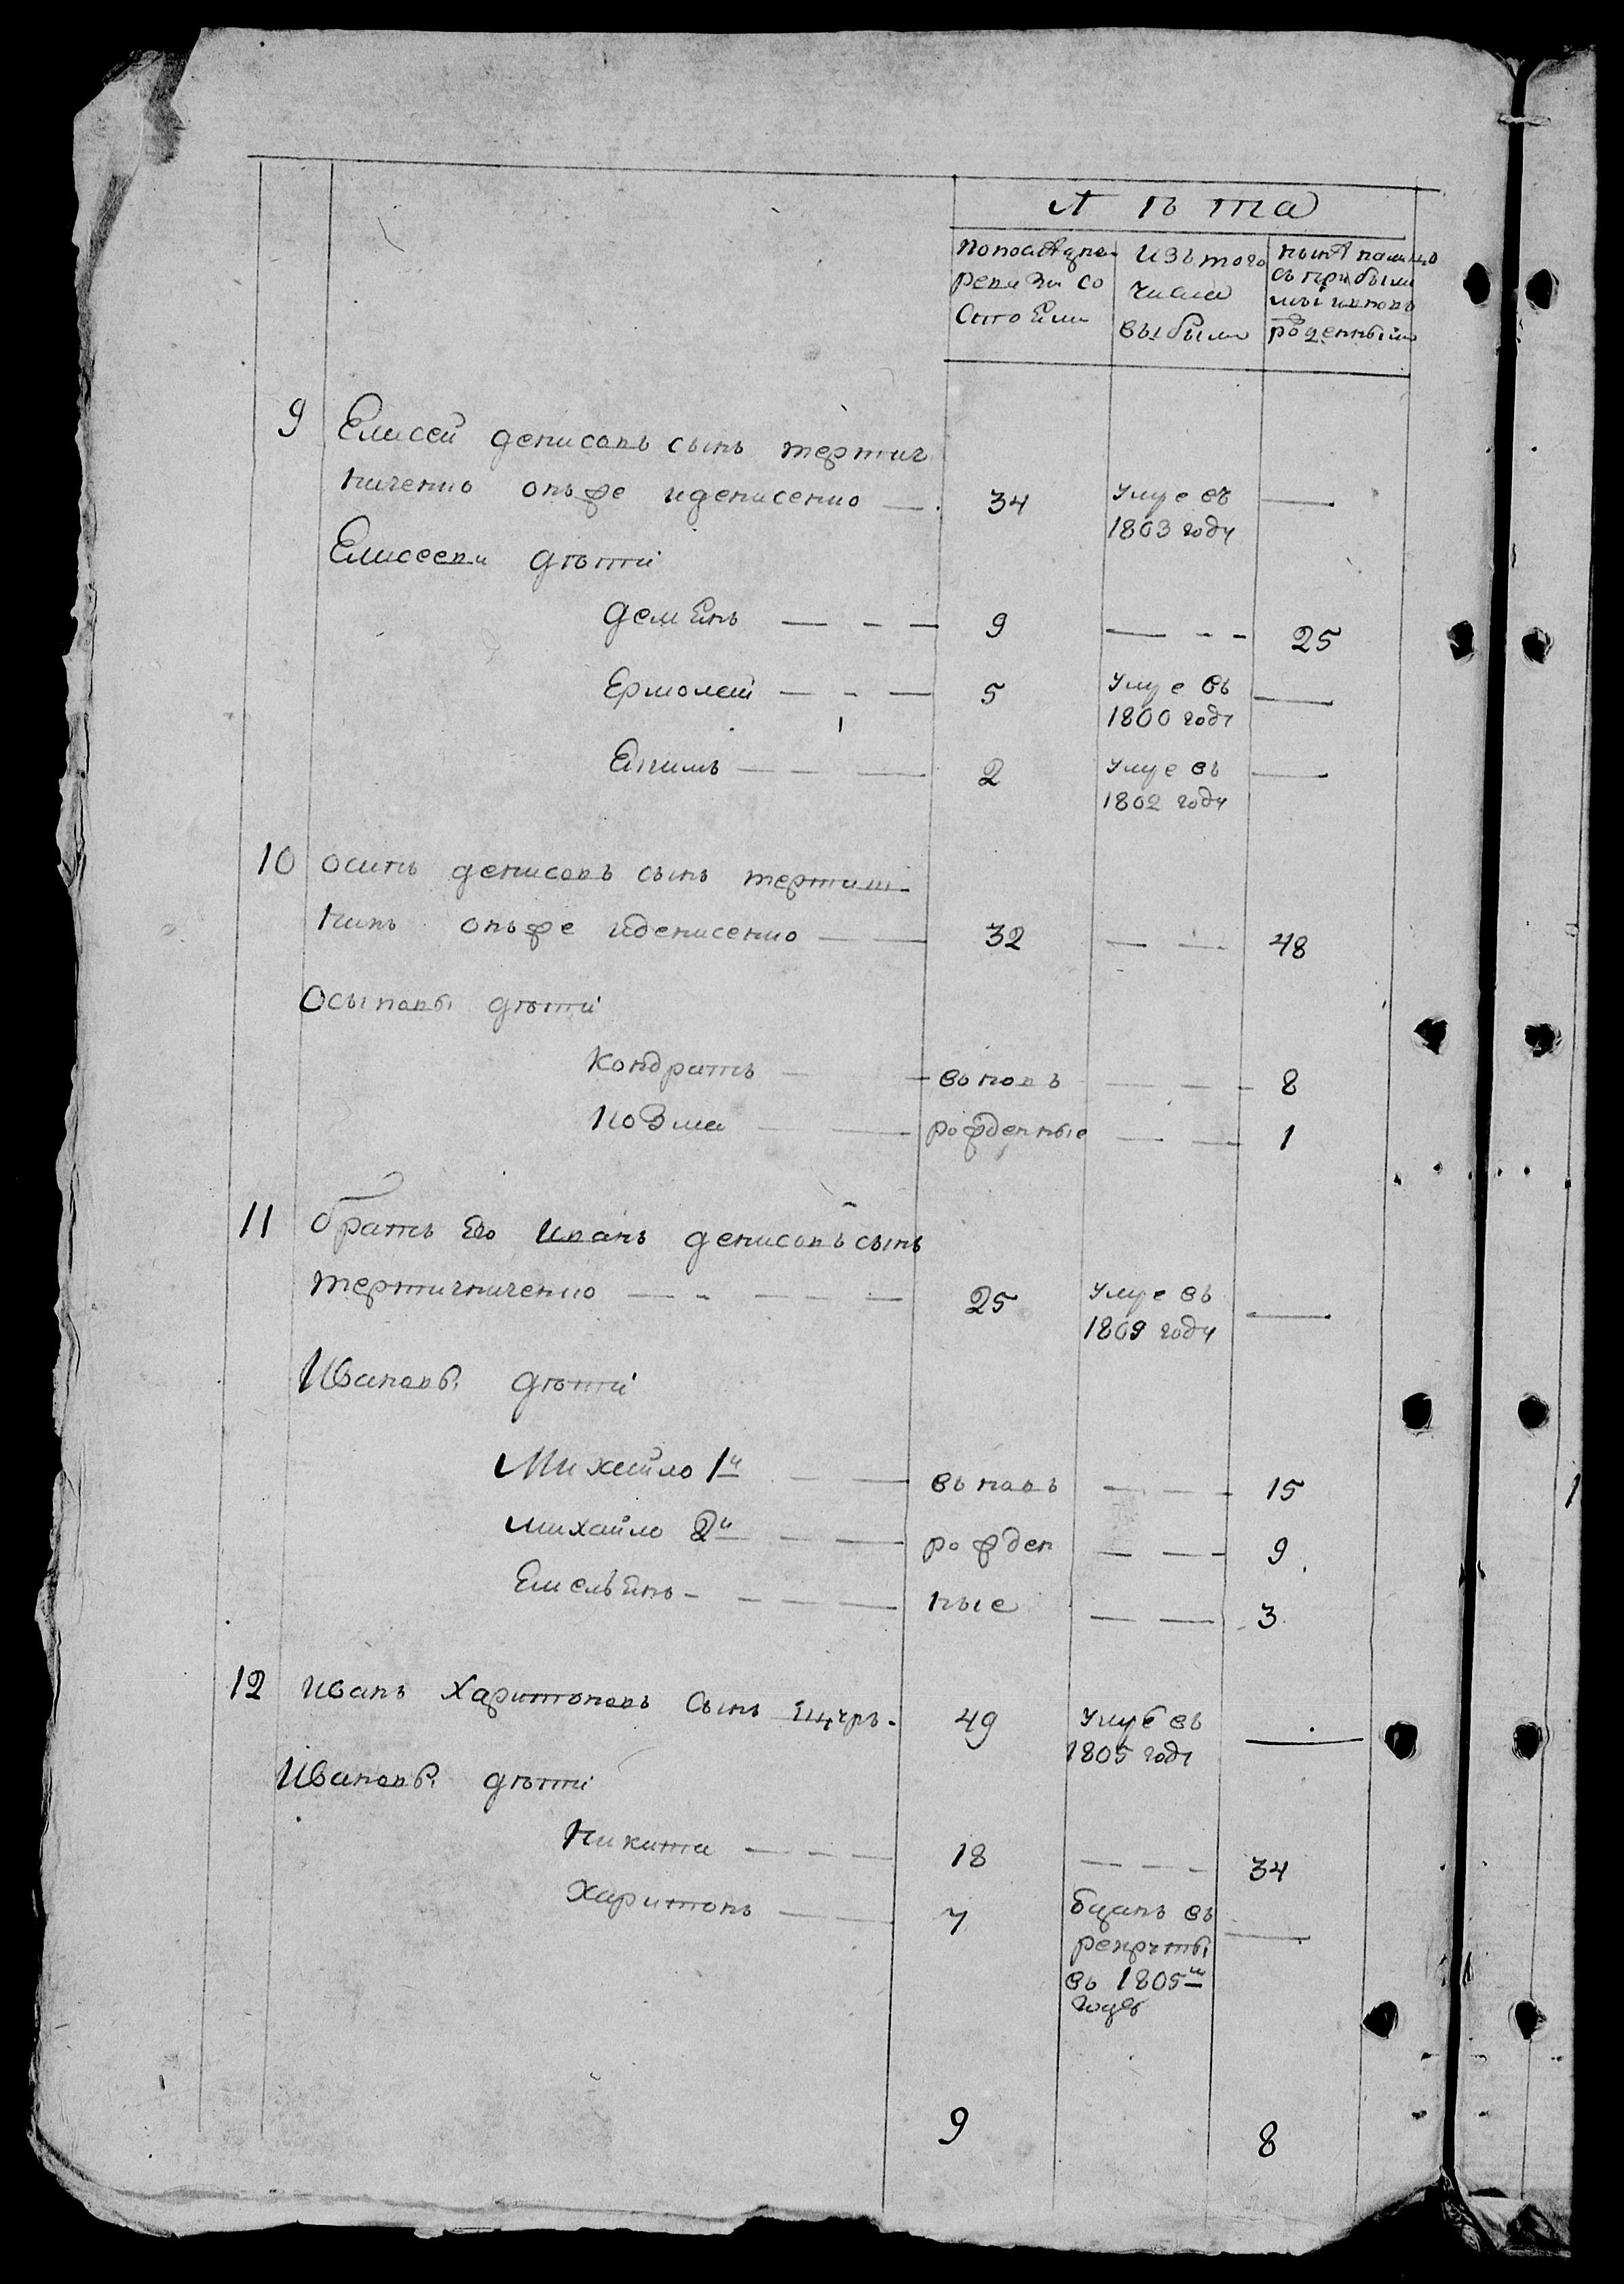 Лѣта
попоследней
ревизи со
стоѢли
изътого
числа
выбыли
нынѣ налицо
съ прибыли
ми ивновь
рожденными
9 Елисей денисовъ сынъ тертич
ниченко онъже иденисенко 34 умре въ —
1803 году
Елисеевы дѣти
демѢнъ 9 — 25
Ермолай 5 умре въ —
1800 году
Екимъ 2 умре въ —
1802 году
10 осипъ денисовъ сынъ тертиш
никъ онъже иденисенко 32 — 48
Осыповы дѣти
Кондратъ вновъ — 8
козма рожденные — 1
11 братъ его иванъ денисовъ сынъ
тертичниченко 25 умре въ —
1809 году
Ивановы дѣти
Михайло 1й вновъ — 15
михайло 2й рожден — 9
ЕмельѢнъ ные — 3
12 иванъ харитоновъ сынъ 49 умре въ —
1805 году
Ивановы дѣти
никита 18 — 34
харитонъ 7 въ —
рекруты
въ 1805м
годе
9 8